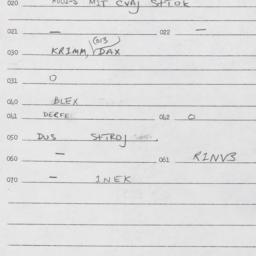 020 MIT CVAJ SHTOK
021 — 022 —
(013
030 KRIMM, DAX
031 O
040 BLEX
041 DERFE 042 O
050 DUS SHTROJ
060 — 061 RINVS
070 — INEK